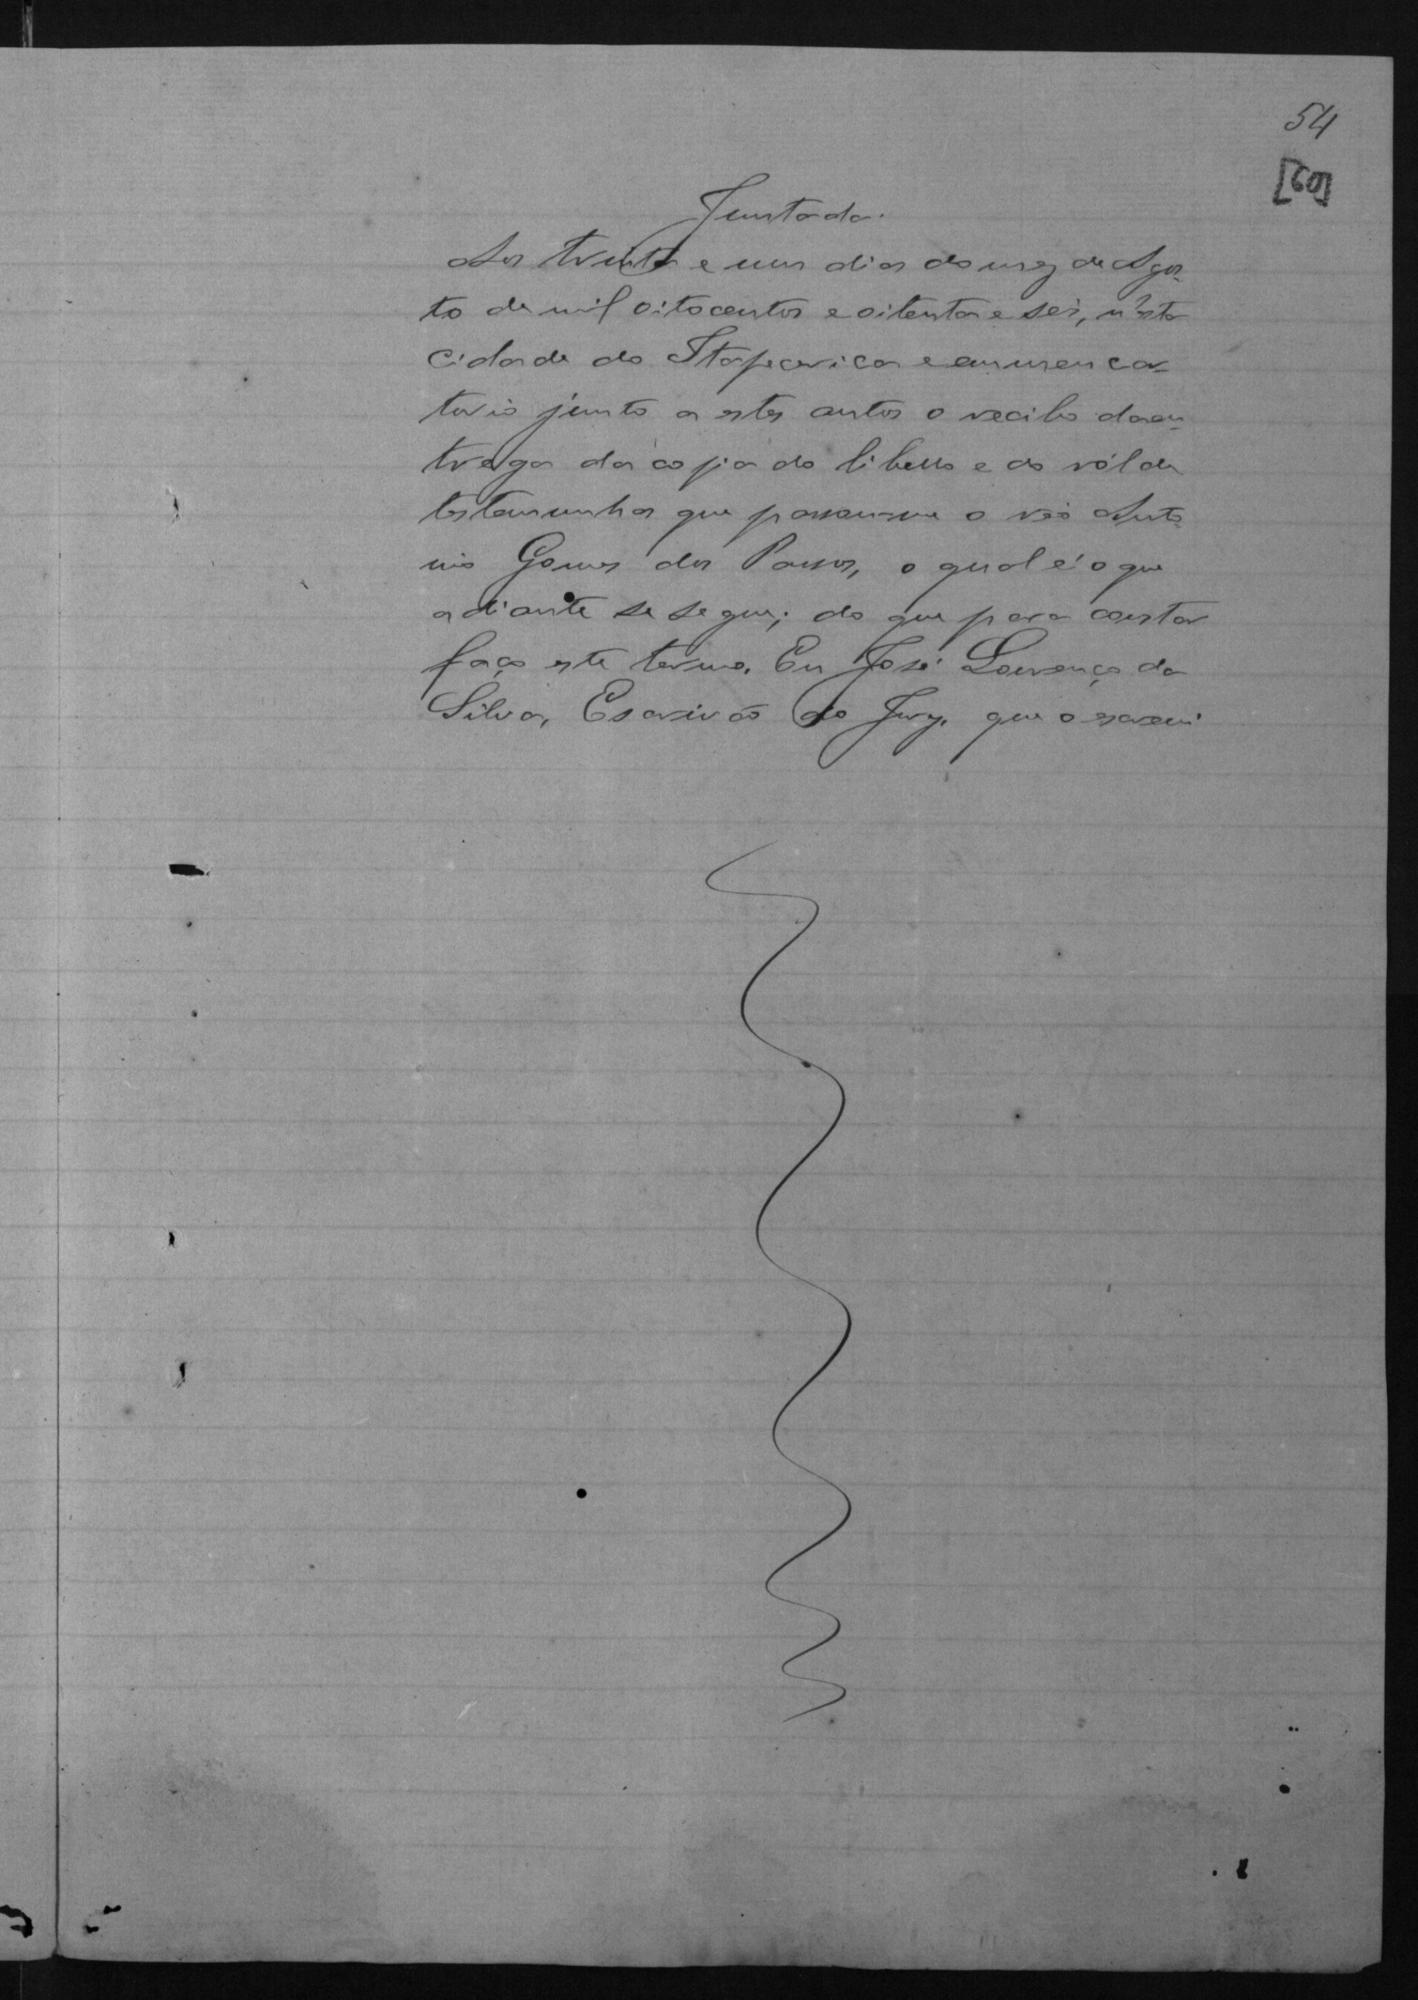 54
[60]
Juntada.
Aos trinta e um dias do mez de Agos-
to de mil oitocentos e oitenta e seis, n'esta
cidade do Itapecerica e em meu car-
torio junto a estes autos o recibo da en-
trega da copia do libello e do ról de
testemunhas que passou-me o réo Anto-
nio Gomes dos Passos, o qual é o que
adiante se segue; do que para constar
faço este termo. Eu José Lourenço da
Silva, Escrivão do Jury. que o escrevi